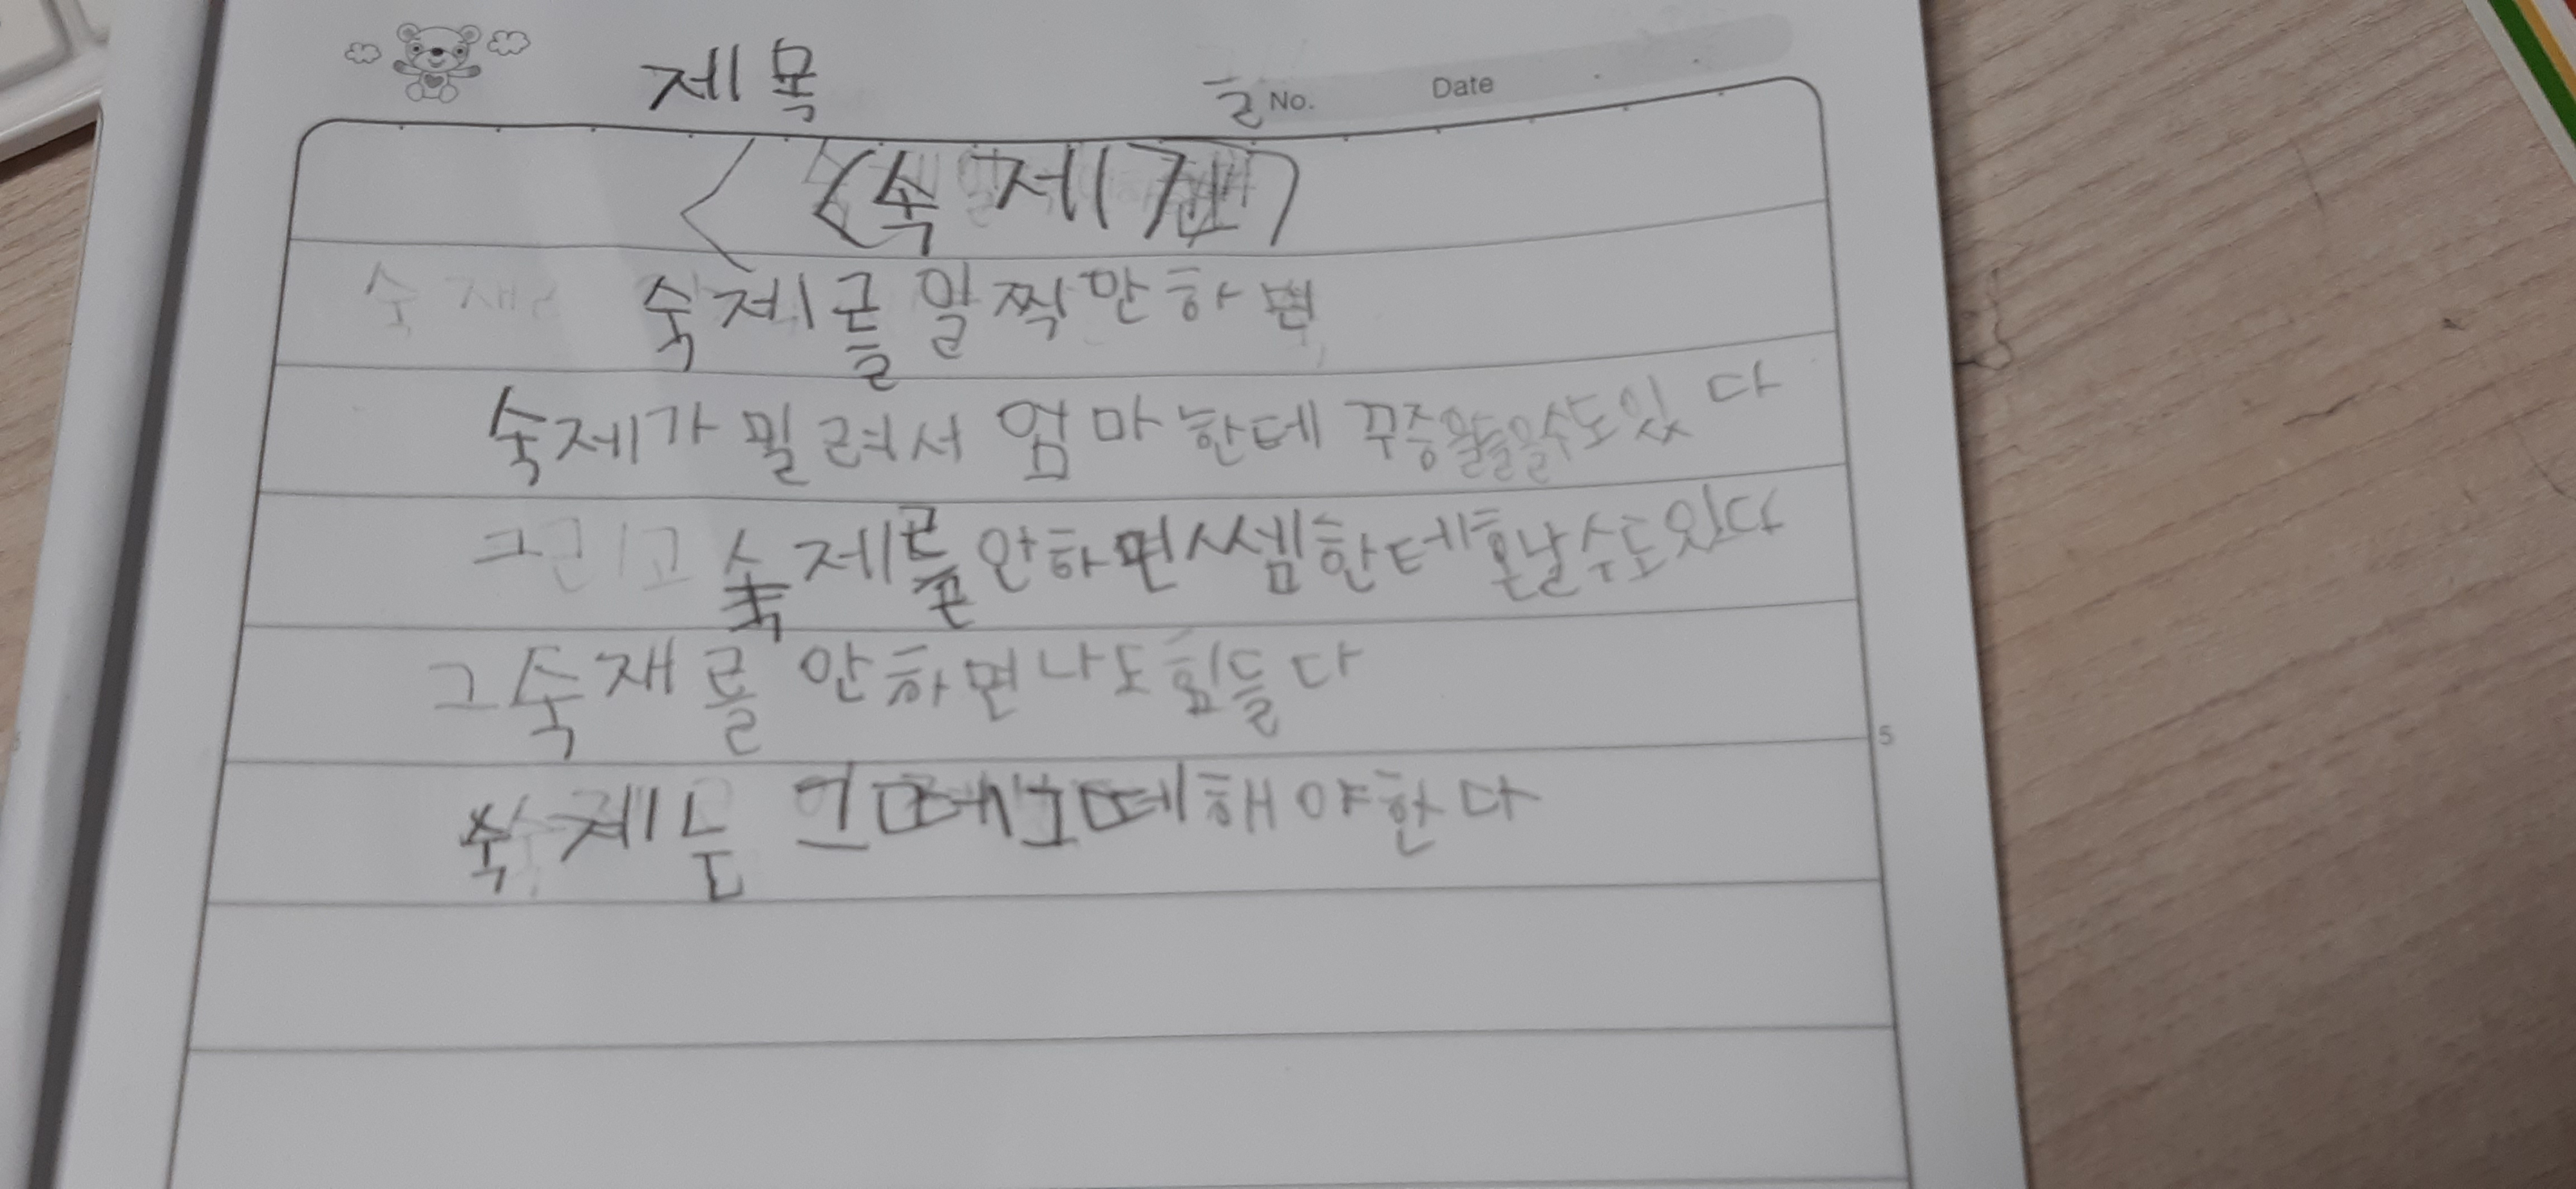 제목
No. Date
<(숙제)
숙제를 일찍 안하면
숙제가 밀려서 엄마한테 꾸중을 들을수도있다
그리고 숙제를 안하면 쌤한테 혼날수도있다
그 숙재를 안하면 나도 힘들다
숙제는 그때그때해야한다
5